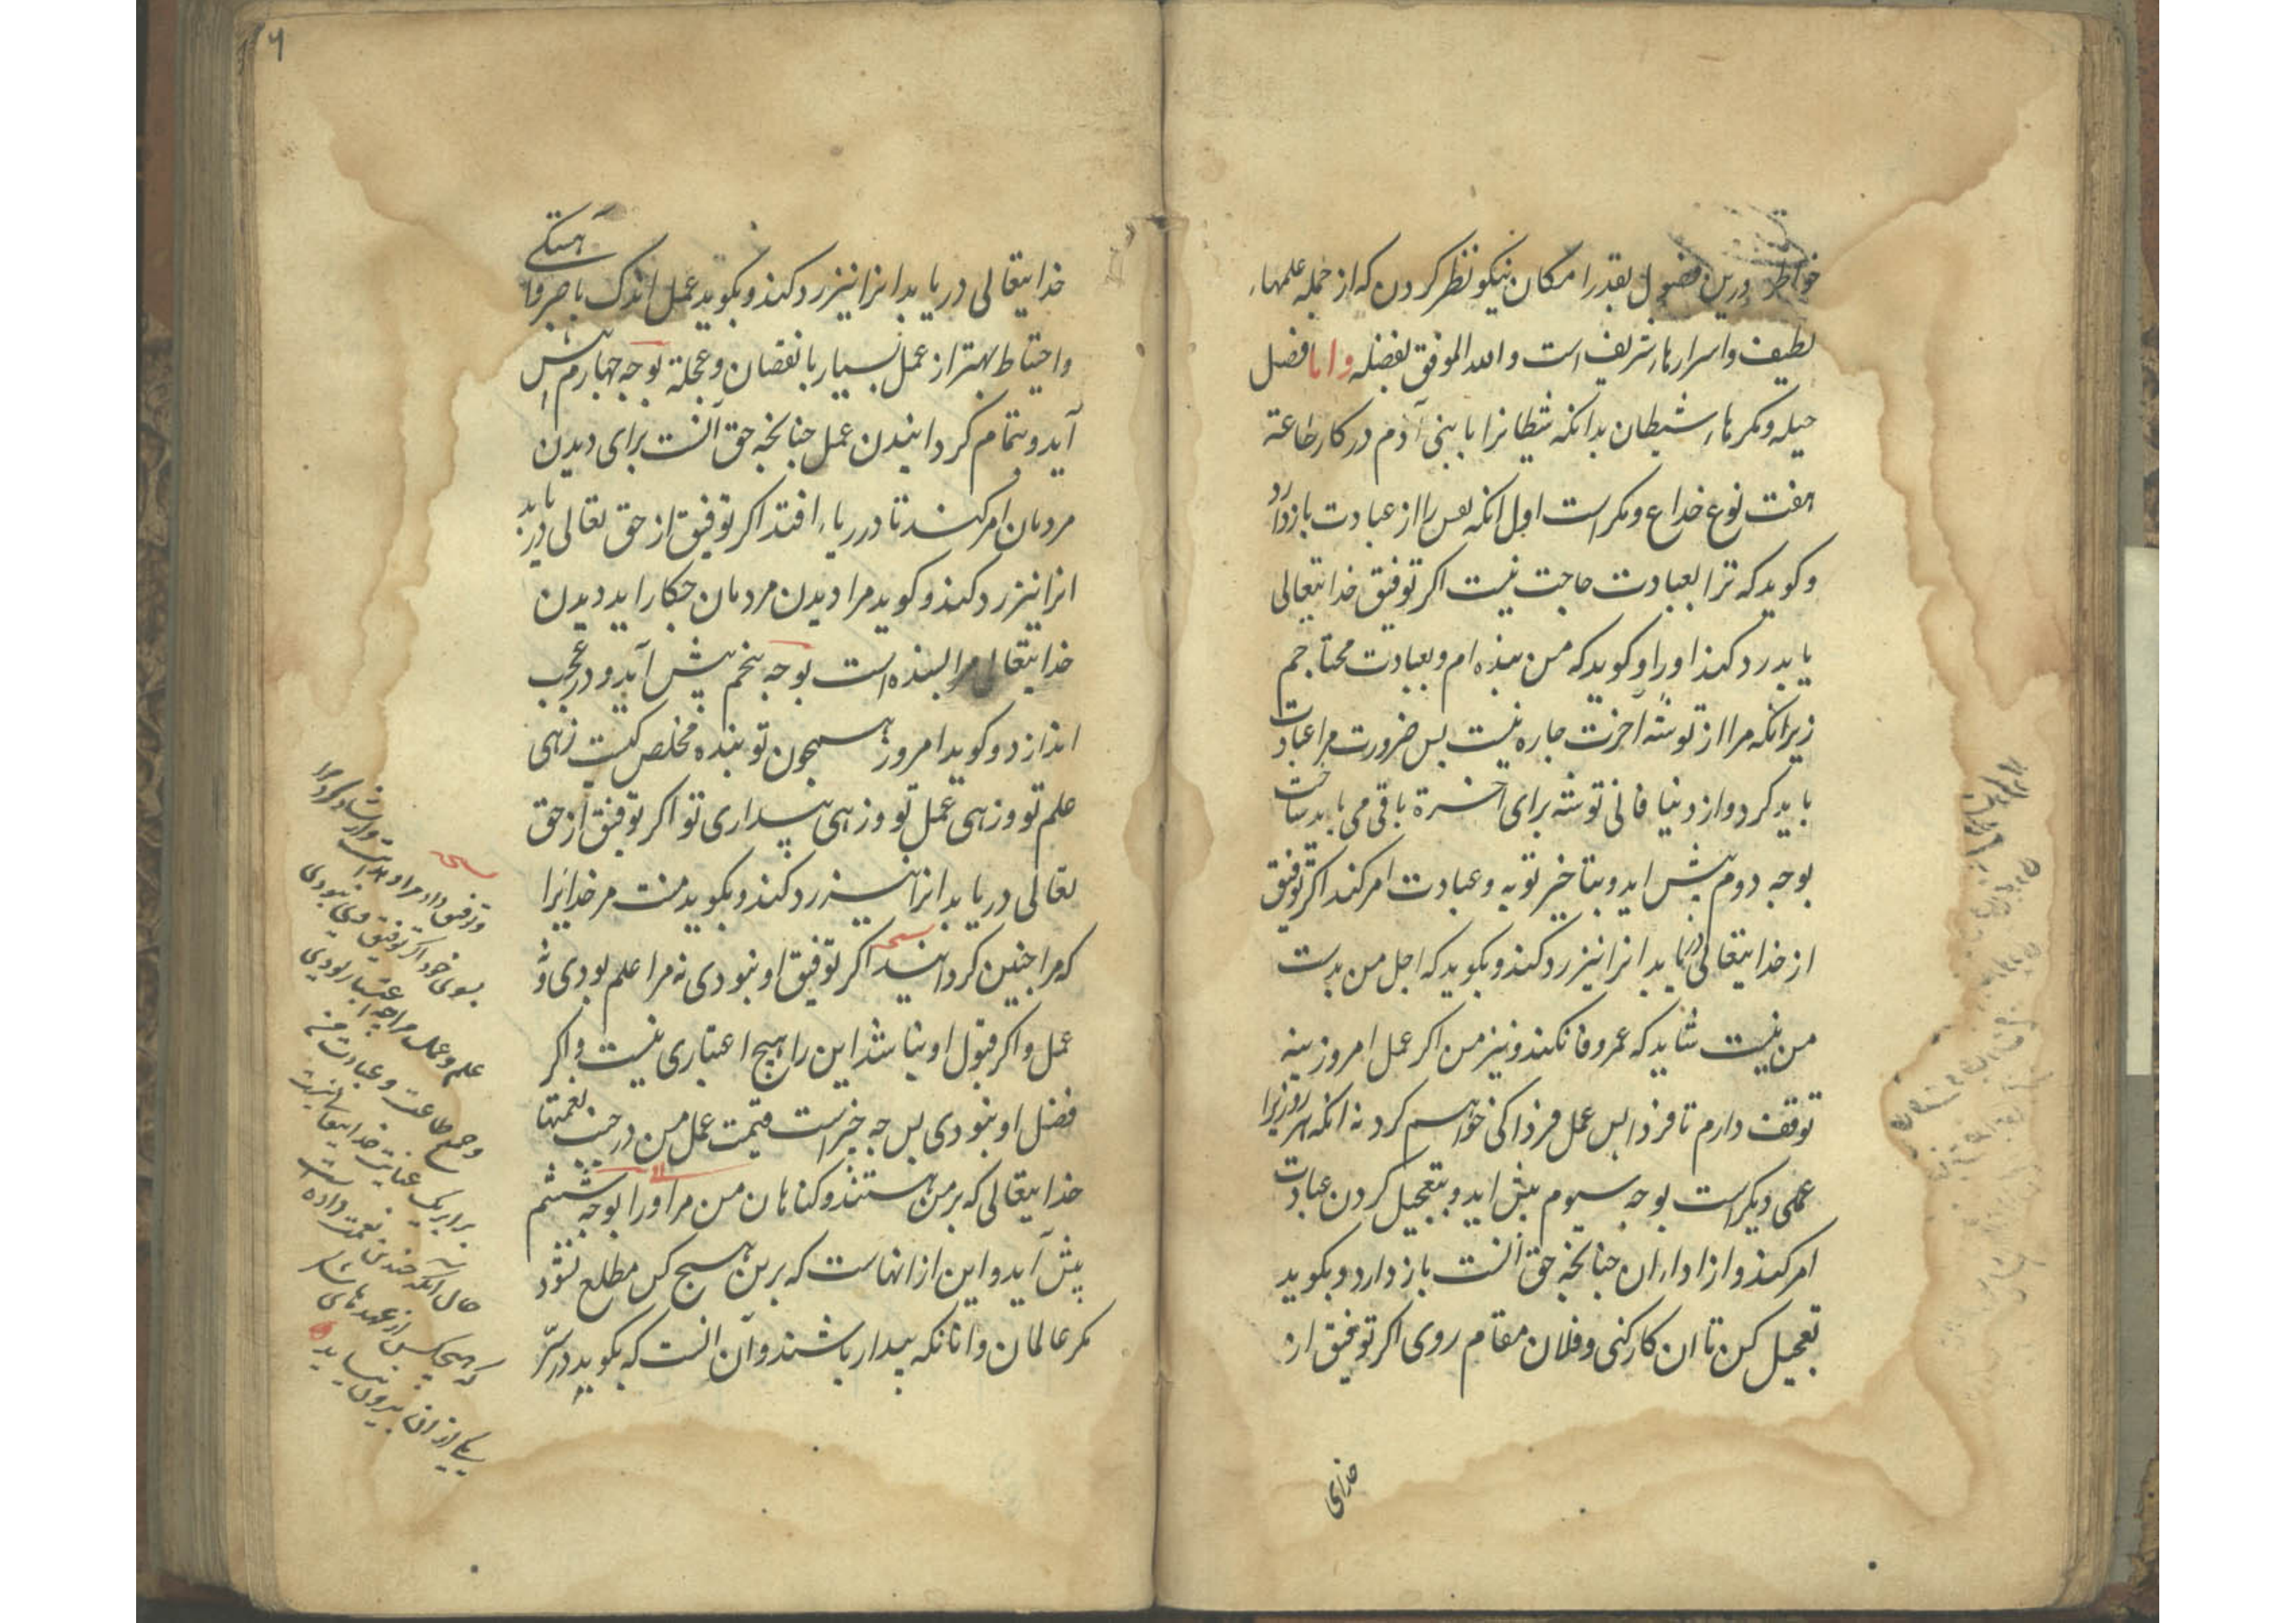 خواطر درین فضول بقدر امکان نیکو نظر کردن که از جمله علمهاء
لطیف و اسرارهاء شریف است والله الموفق بفضله واما فصل
حیله و مکرهاء شیطان بدانکه شیطانرا با بنی آدم در کار طاعة
هفت نوع خداع و مکر است اول انکه نفس را از عبادت باز دارد
و کوید که ترا بعبادت حاجت نیست اکر توفیق خدایتعالی
یابد رد کند اورا و کوید که من بنده ام و بعبادت محتاجم
زیرانکه مرا از توشه آخرت جاره نیست بس ضرورت مرا عبادت
باید کرد و از دنیا فانی توشه برای اخرة باقی می باید ساخت
بوجه دوم پیش اید و بتاخیر توبه و عبادت امر کند اکر توفیق
از خدایتعالی دریابد انرا نیز رد کند و بکوید که اجل من بدست
من نیست شاید که عمر وفا نکند و نیز من اکر عمل امروزینه
توقف دارم تا فردا بس عمل فردا کی خواهم کرد نه انکه هر روزیرا
عملی دیکر است بوجه سیوم پیش اید و بتعجیل کردن عبادت
امر کند و از اداء ان جنانجه حق آنست باز دارد و بکوید
تعجیل کن تا ان کار کنی و فلان مقام روی اکر توفیق از
خدای
۶
خدایتعالی دریابد انرا نیز رد کند و بکوید عمل اندک با صبر و آهستکی
واحتیاط بهتر از عمل بسیار با نقصان و عجلة بوجه جهارم پیش
آید و بتمام کردانیدن عمل جنانجه حق آنست برای دیدن
مردمان امر کند تا در ریاء افتد اکر توفیق از حق تعالی دریابد
انرا نیز رد کند و کوید مرا دیدن مردمان جکار اید دیدن
خدایتعالی مرا بسنده است بوجه پنجم پیش آید و در عجب
اندازد و کوید امروز همجون تو بنده مخلص کیست زهی
علم تو و زهی عمل تو و زهی بیداری تو اکر توفیق از حق
تعالی دریابد انرا نیز رد کند و بکوید منت مر خدایرا
که مرا جنین کردانید اکر توفیق او نبودی نه مرا علم بودی و نه
عمل و اکر قبول او نباشد این را هیج اعتباری نیست و اکر
فضل او نبودی بس جه جیز است قیمت عمل من در جنب نعمتهاء
خدایتعالی که بر من هستند و کناهان من مر اورا بوجه ششم
پیش آید و این از انهاست که برین هیج کس مطلع نشود
مکر عالمان و انانکه بیدار باشند و آن انست که بکوید در سرّ
و توفیق داد مرا و هدایت و ارشاد کرد مرا
بسوی خود اکر توفیق وی نبودی
علم و عمل مرا جه اعتبار بودی
و جمع طاعت و عبادت من
برابر یک عنایت خدایتعالی نیست
حال آنکه جندین نعمت داده است
که هیجکس از عهدهای شکر
یکی از ان بیرون نیاید